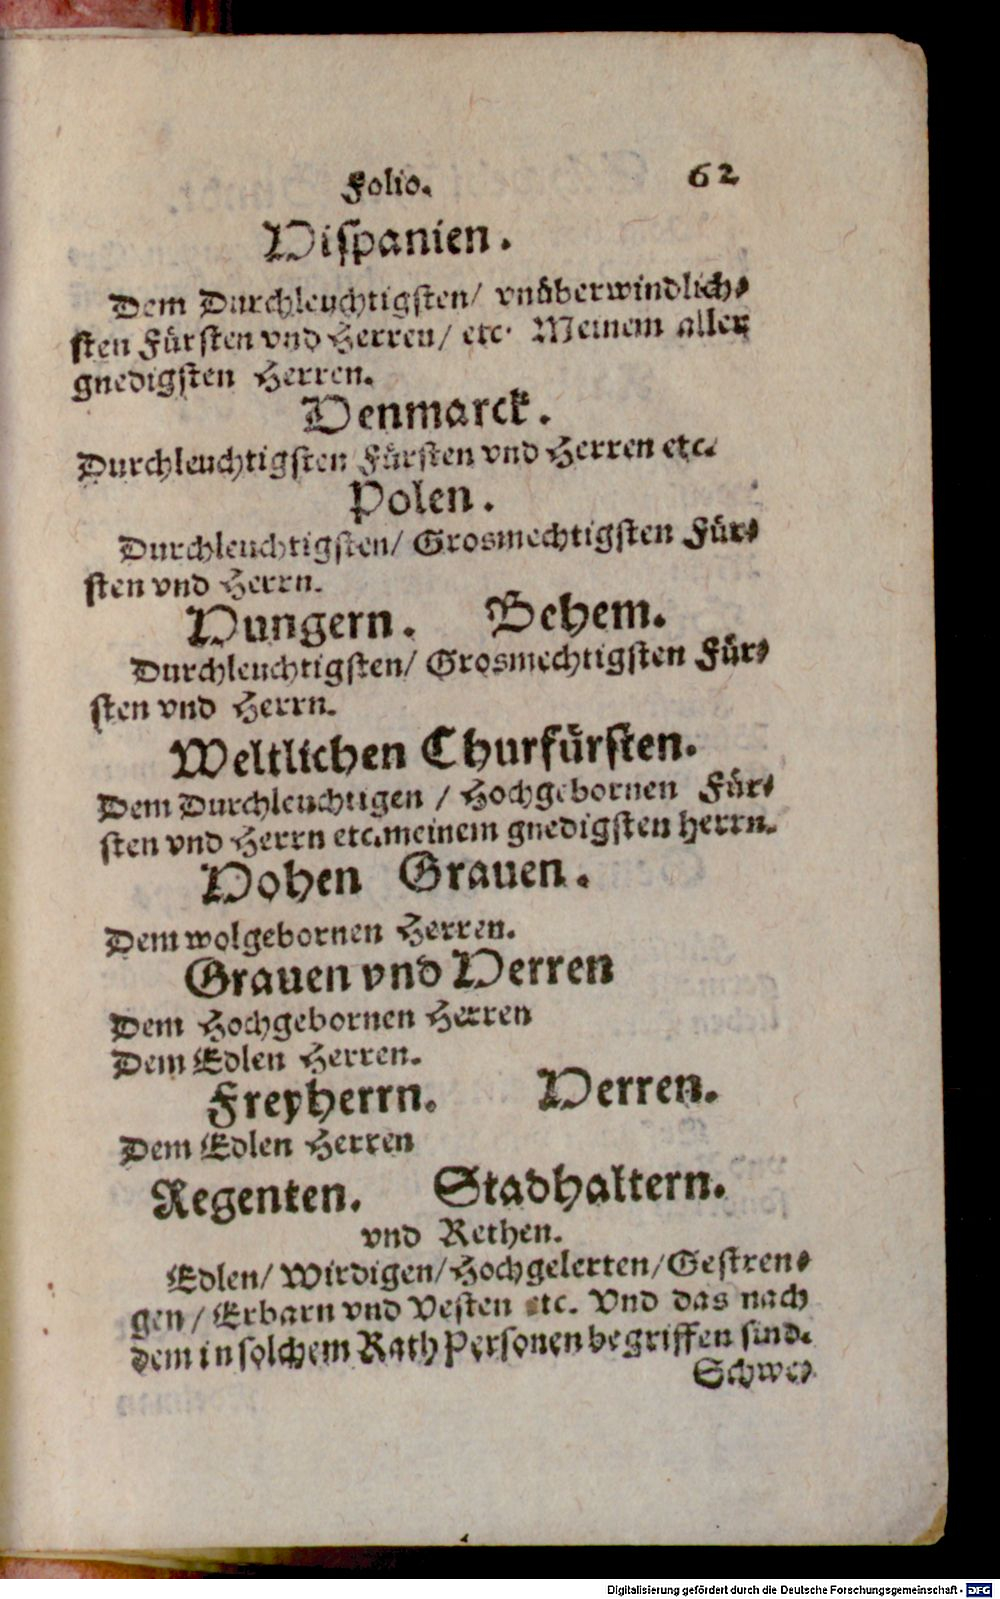 Folio. 62
Hispanien.
Dem Durchleuchtigsten/ vnüberwindlich⸗
sten Fürsten vnd Herren/ etc. Meinem aller
gnedigsten Herren.
Denmarck.
Durchleuchtigsten Fürsten vnd Herren etc.
Polen.
Durchleuchtigsten/ Grosmechtigsten Für⸗
sten vnd Herrn.
Hungern. Behem.
Durchleuchtigsten/ Grosmechtigsten Für⸗
sten vnd Herrn.
Weltlichen Churfürsten.
Dem Durchleuchtigen / Hochgebornen Für⸗
sten vnd Herrn etc. meinem gnedigsten herrn.
Hohen Grauen.
Dem wolgebornen Herren.
Grauen vnd Herren
Dem Hochgebornen Herren
Dem Edlen Herren.
Freyherrn. Herren.
Dem Edlen Herren
Regenten. Stadhaltern.
vnd Rethen.
Edlen/ Wirdigen/ Hochgelerten/ Gestren⸗
gen/ Erbarn vnd Vesten etc. Vnd das nach
dem in solchem Rath Personen begriffen sind.
Schwe⸗
Digitalisierung gefördert durch die Deutsche Forschungsgemeinschaft - DFG